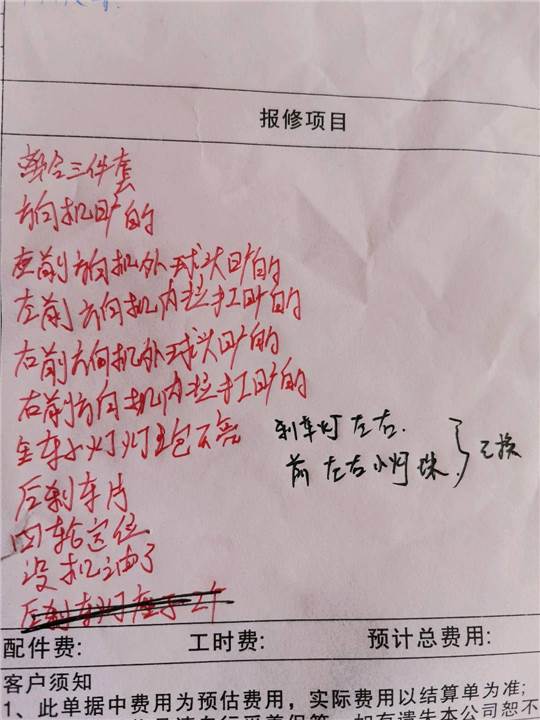 报修项目
离合三件套
方向机旷的
左前方向机外球头旷的
左前方向机内拉杠旷的
右前方向机外球头旷的
右前方向机内拉杠旷的
全车小灯灯包不亮
刹车灯左右.
前左右小灯珠
已换
后刹车片
四轮定位
没机油了
后刹车灯座子2个
配件费: 工时费: 预计总费用:
客户须知
1、此单据中费用为预估费用，实际费用以结算单为准;